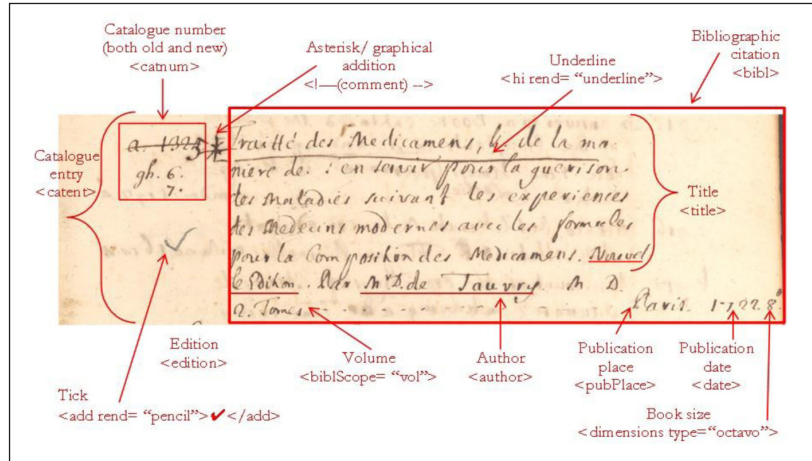 Catalogue number
(both old and new)
<catnum>
Asterisk/ graphical
addition
<!—(comment) -->
Underline
<hi rend= “underline”>
Bibliographic
citation
<bibl>
Catalogue
entry
<catent>
a. 1325
gh. 6.
7.
Traitté des Medicamens, & de la ma
niere de s'en servir pour la guerison
des Maladies suivant les experiences
des Medecins modernes avec les formules
pour la Composition des Medicamens. Nouvel
le Edition. Par Mr D. de Tauvry. M D.
2. Tomes
Paris. 1722. 8º.
Title
<title>
Edition
<edition>
Volume
<biblScope= “vol”>
Author
<author>
Publication
place
<pubPlace>
Publication
date
<date>
Tick
<add rend= “pencil”>✔</add>
Book size
<dimensions type=“octavo”>